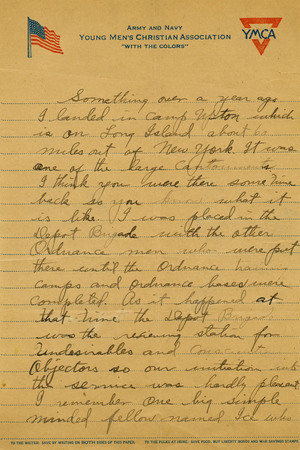 ARMY AND NAVY
YOUNG MEN'S CHRISTIAN ASSOCIATION
"WITH THE COLORS"
YMCA
Something over a year ago
I landed in Camp Upton which
is on Long Island about 60
miles out of New York. It was
one of the large Cantonments
I think you were there some time
back so you know what it
is like. I was placed in the
Depot Brigade with the other
Ordnance men who were put
there until the Ordnance training
camps and Ordnance bases were
completed. As it happened at
that time the Depot Brigade
was the receiving station for
Undesirables and
Objectors so our initiation into
the service was hardly pleasant
I remember one big simple
minded fellow named Ice who
TO THE WRITER: SAVE BY WRITING ON BOTH SIDES OF THIS PAPER. TO THE FOLKS AT HOME: SAVE FOOD, BUY LIBERTY BONDS AND WAR SAVINGS STAMPS.